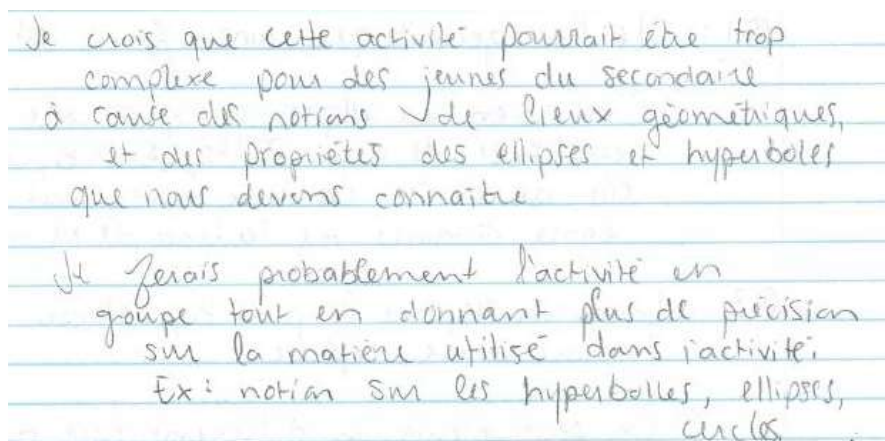 Je crois que cette activité pourrait être trop
complexe pour des jeunes du secondaire
à cause des notions de lieux géométriques,
et des propriétés des ellipses et hyperboles
que nous devons connaître
Je ferais probablement l'activité en
groupe tout en donnant plus de précision
sur la matière utilisé dans l'activité.
Ex: notion sur les hyperbolles, ellipses,
cercles